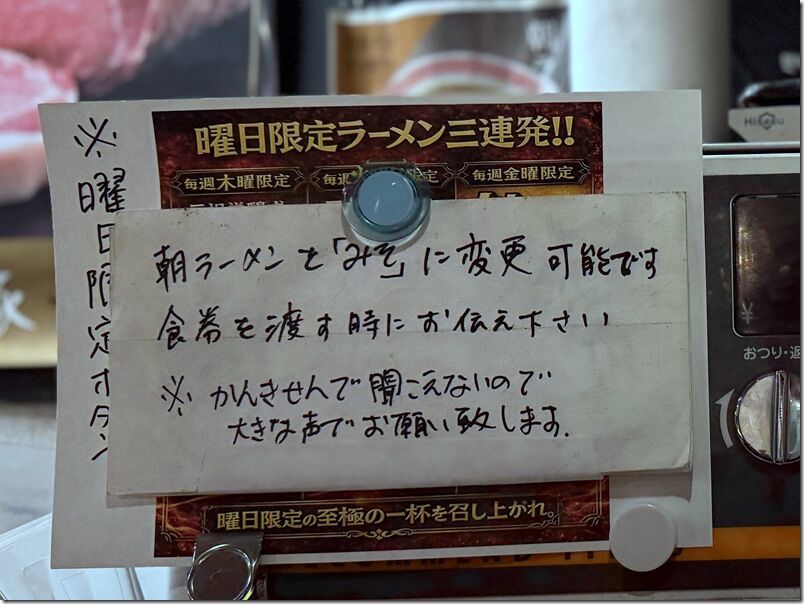 ※曜日限定ボタン
曜日限定ラーメン三連発!!
毎週木曜限定
毎週金曜限定
朝ラーメンを「みそ」に変更可能です
食券を渡す時にお伝え下さい
※かんきせんで聞こえないので
大きな声でお願い致します.
曜日限定の至極の一杯を召し上がれ。
Hiseku
¥
おつり・返